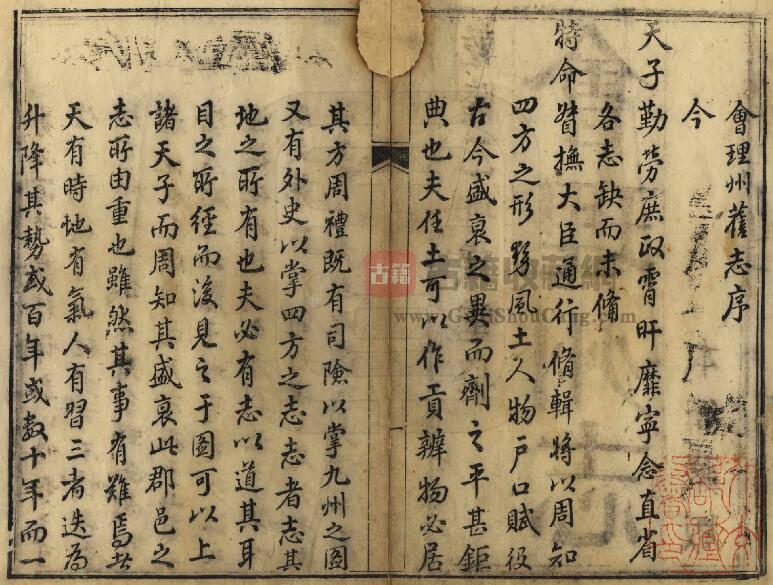 會理州舊志序
今
天子勤勞庶政宵旰靡寧念直省
各志缺而未脩
特命督撫大臣通行脩輯將以周知
四方之形勢風土人物户口賦役
古今盛衰之異而劑之平甚鉅
典也夫任土可以作貢辨物必居
其方周禮既有司險以掌九州之圖
又有外史以掌四方之志志者志其
地之所有也夫必有志以道其耳
目之所經而後見之于圖可以上
諸天子而周知其盛衰此郡邑之
志所由重也雖然其事有難焉者
天有時地有氣人有習三者迭為
升降其勢或百年或數十年而一
古籍
古籍收藏網
www.GuJiShouCang.com